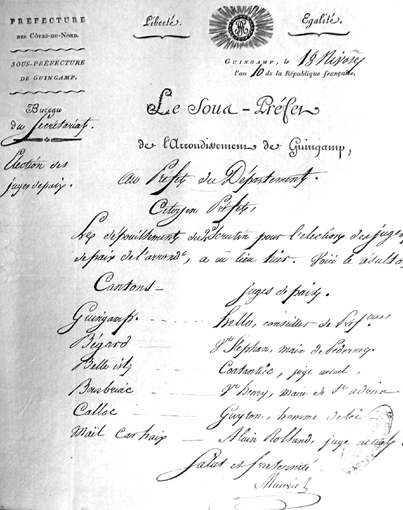 PRÉFECTURE
DES CÔTES-DU-NORD.
SOUS-PRÉFECTURE
DE GUINGAMP.
Liberté.
Egalité.
GUINGAMP, le 18 Nivôse
l'an 10 de la République française.
Bureau
du Secrétariat.
Election des
juges de paix.
Le Sous-Préfet
de l'Arrondissement de Guingamp,
au Préfet du Département.
Citoyen Préfet,
Le dépouillement du scrutin pour l'élection des juges
de paix de l'arrondt, a eu lieu hier. Voici le résultat
Cantons
juges de paix.
Guingamp. Hello, conseiller de Préfure
Bégard Stephan, maire de
Belle isle juge actuel
Bourbriac henry, maire de St adrien
Callac Guyton, homme de loi
Mael Carhaix Alain Rolland, juge actuel
Salut et fraternité